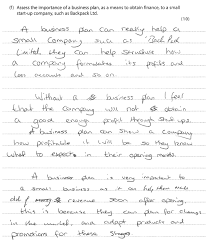 (f) Assess the importance of a business plan, as a means to obtain finance, to a small
start-up company, such as Backpack Ltd.
(10)
A business plan can really help a
small company such as Back Pack
Limited they can help structure how
a company formulates its profits and
loss accounts and so on.
Without a business plan I feel
that the Company will not obtain
a good enough profit through start ups.
A business plan can show a company
how profitable it will be so they know
what to expect in their opening months.
A business plan is very important to
a small business as it can help them make
revenue soon after opening,
this is because they can plan for changes
in the market, and adapt products and
promotions for these stages